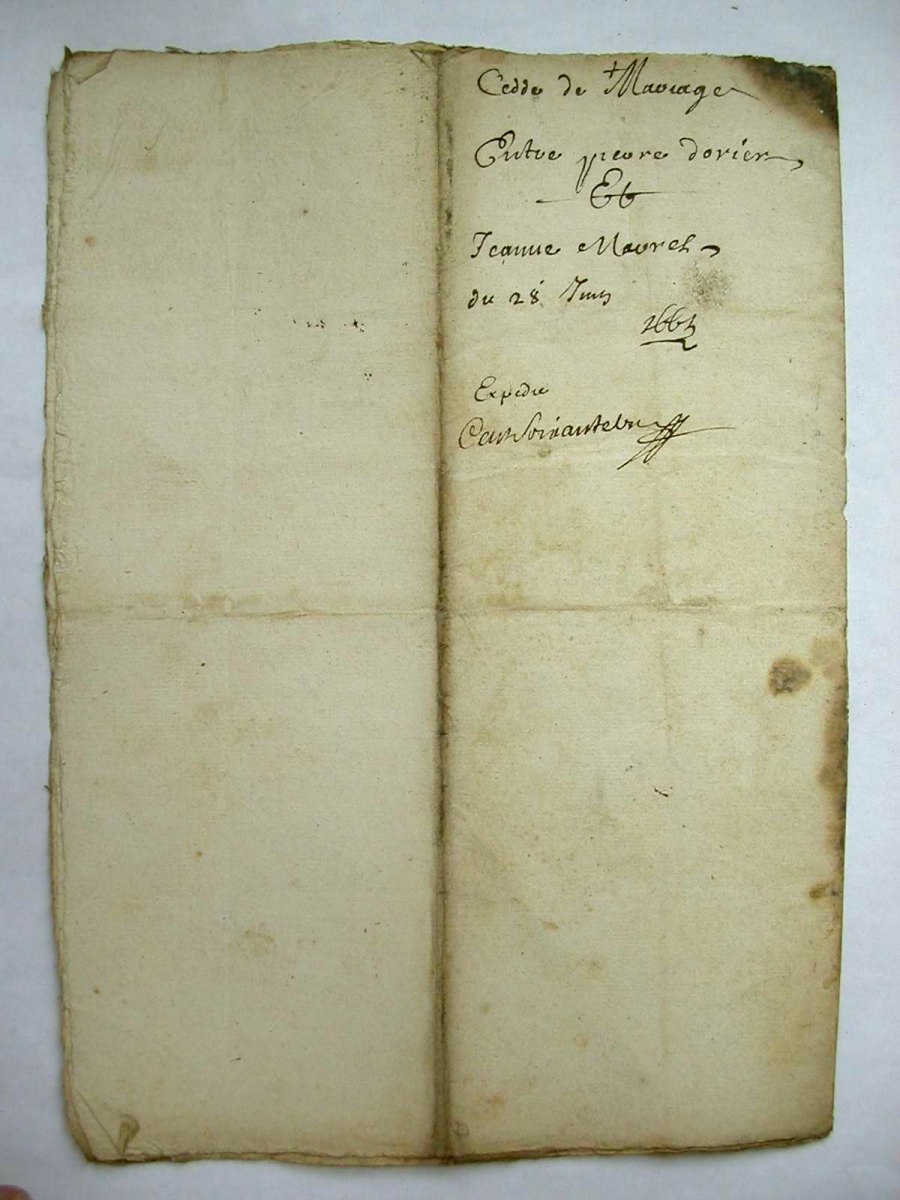 Cedde de Mariage
Entre pierre dorier
Et
Jeanne Maurel
du 28 Juin
1661
Expedie